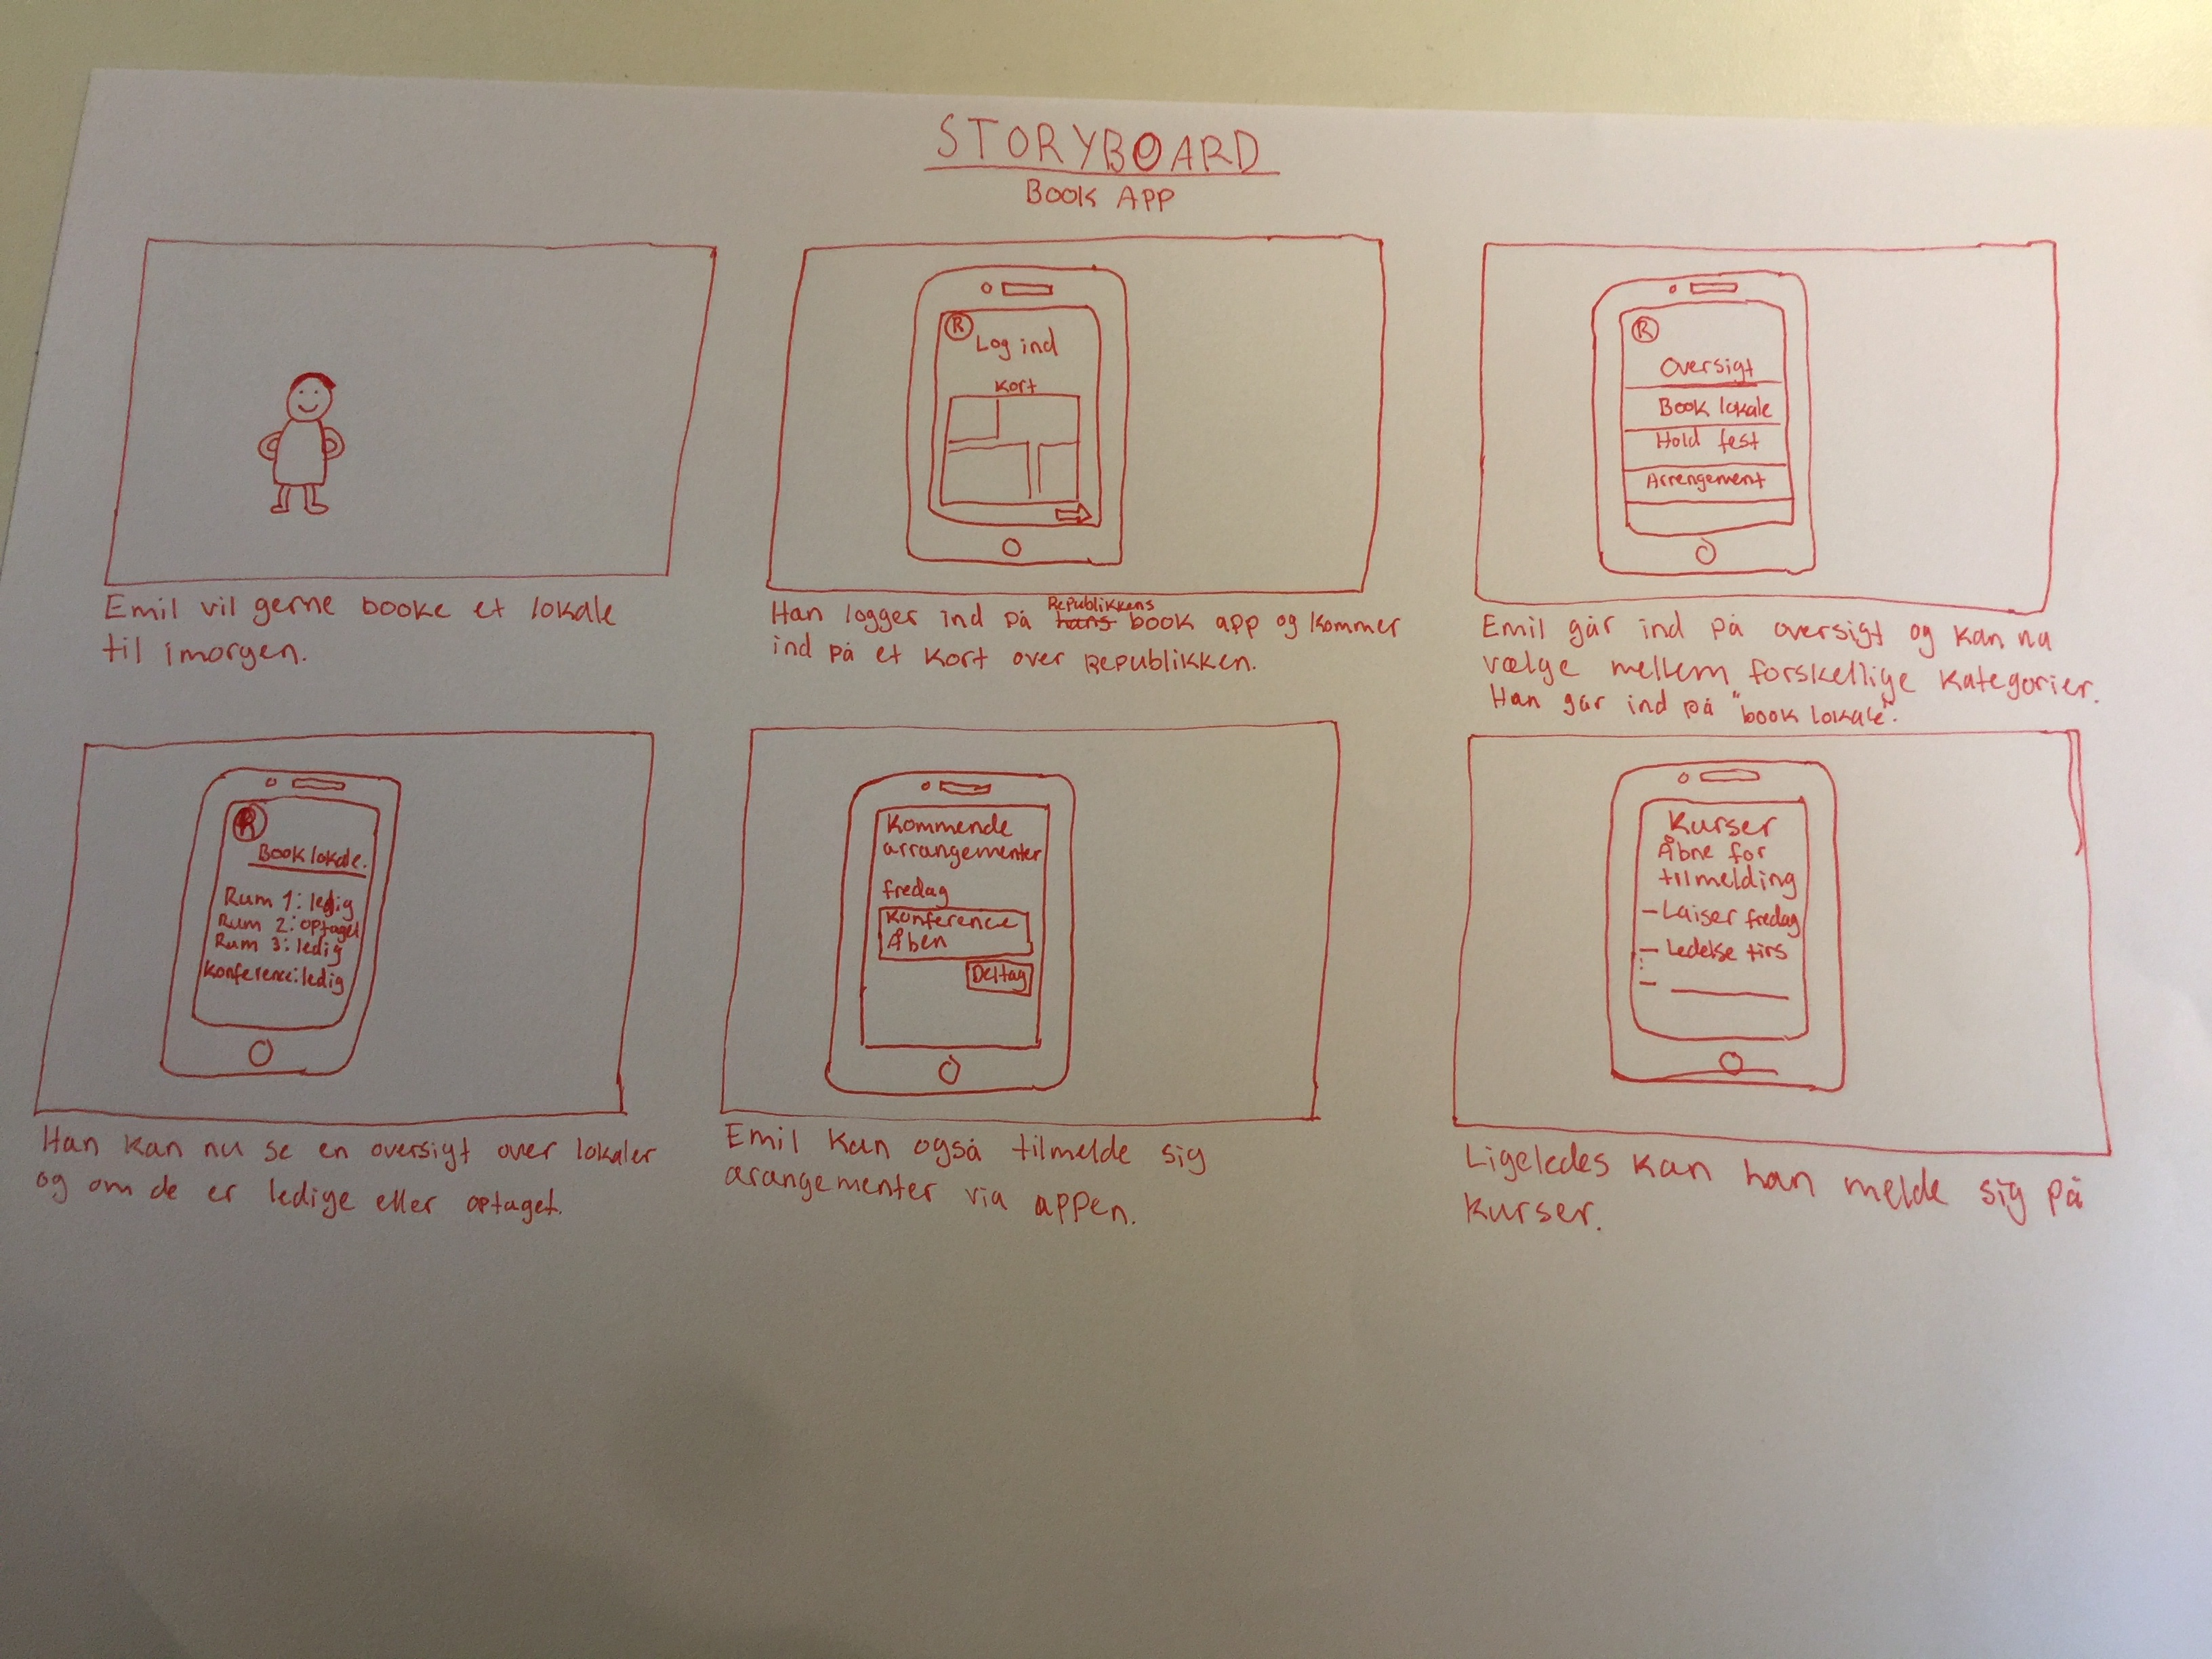 STORYBOARD
BOOK APP
Emil vil gerne booke et lokale
til imorgen.
R
Log ind
Kort
Republikkens
Han logger ind på hans book app og kommer
ind på et kort over Republikken.
R
Oversigt
Book lokale
Hold fest
Arrengement
Emil går ind på oversigt og kan nu
vælge mellem forskellige kategorier.
Han går ind på "book lokale".
R
Book lokale.
Rum 1: ledig
Rum 2: optaget
Rum 3: ledig
Konference: ledig
Han kan nu se en oversigt over lokaler
og om de er ledige eller optaget.
Kommende
arrangementer
fredag
Konference
Åben
Deltag
Emil kan også tilmelde sig
arangementer via appen.
Kurser
Åbne for
tilmelding
- Laiser fredag
- Ledelse tirs
Ligeledes kan han melde sig på
kurser.